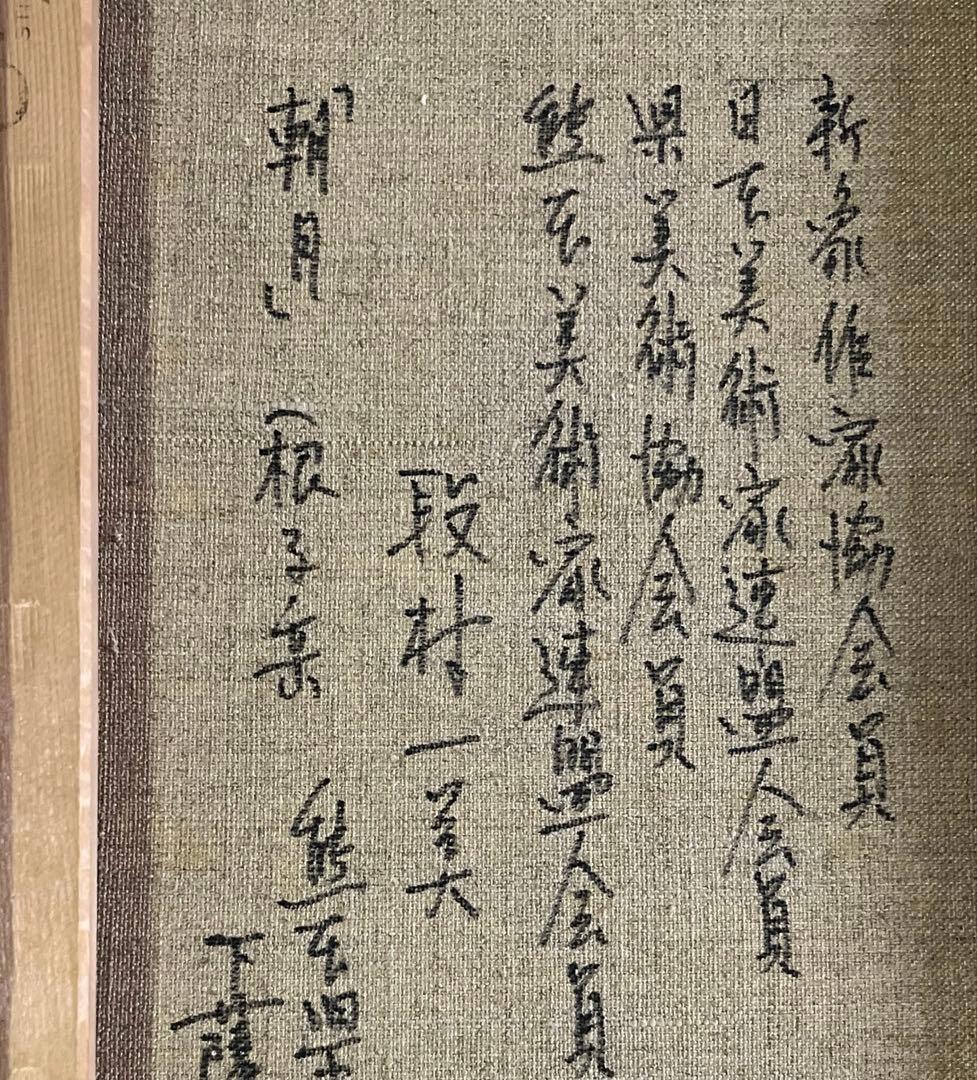 新象作家協会員
日本美術家連盟会員
県美術協会員
熊本美術家連盟会員
段村一美
「朝月」(根子岳 熊本
下